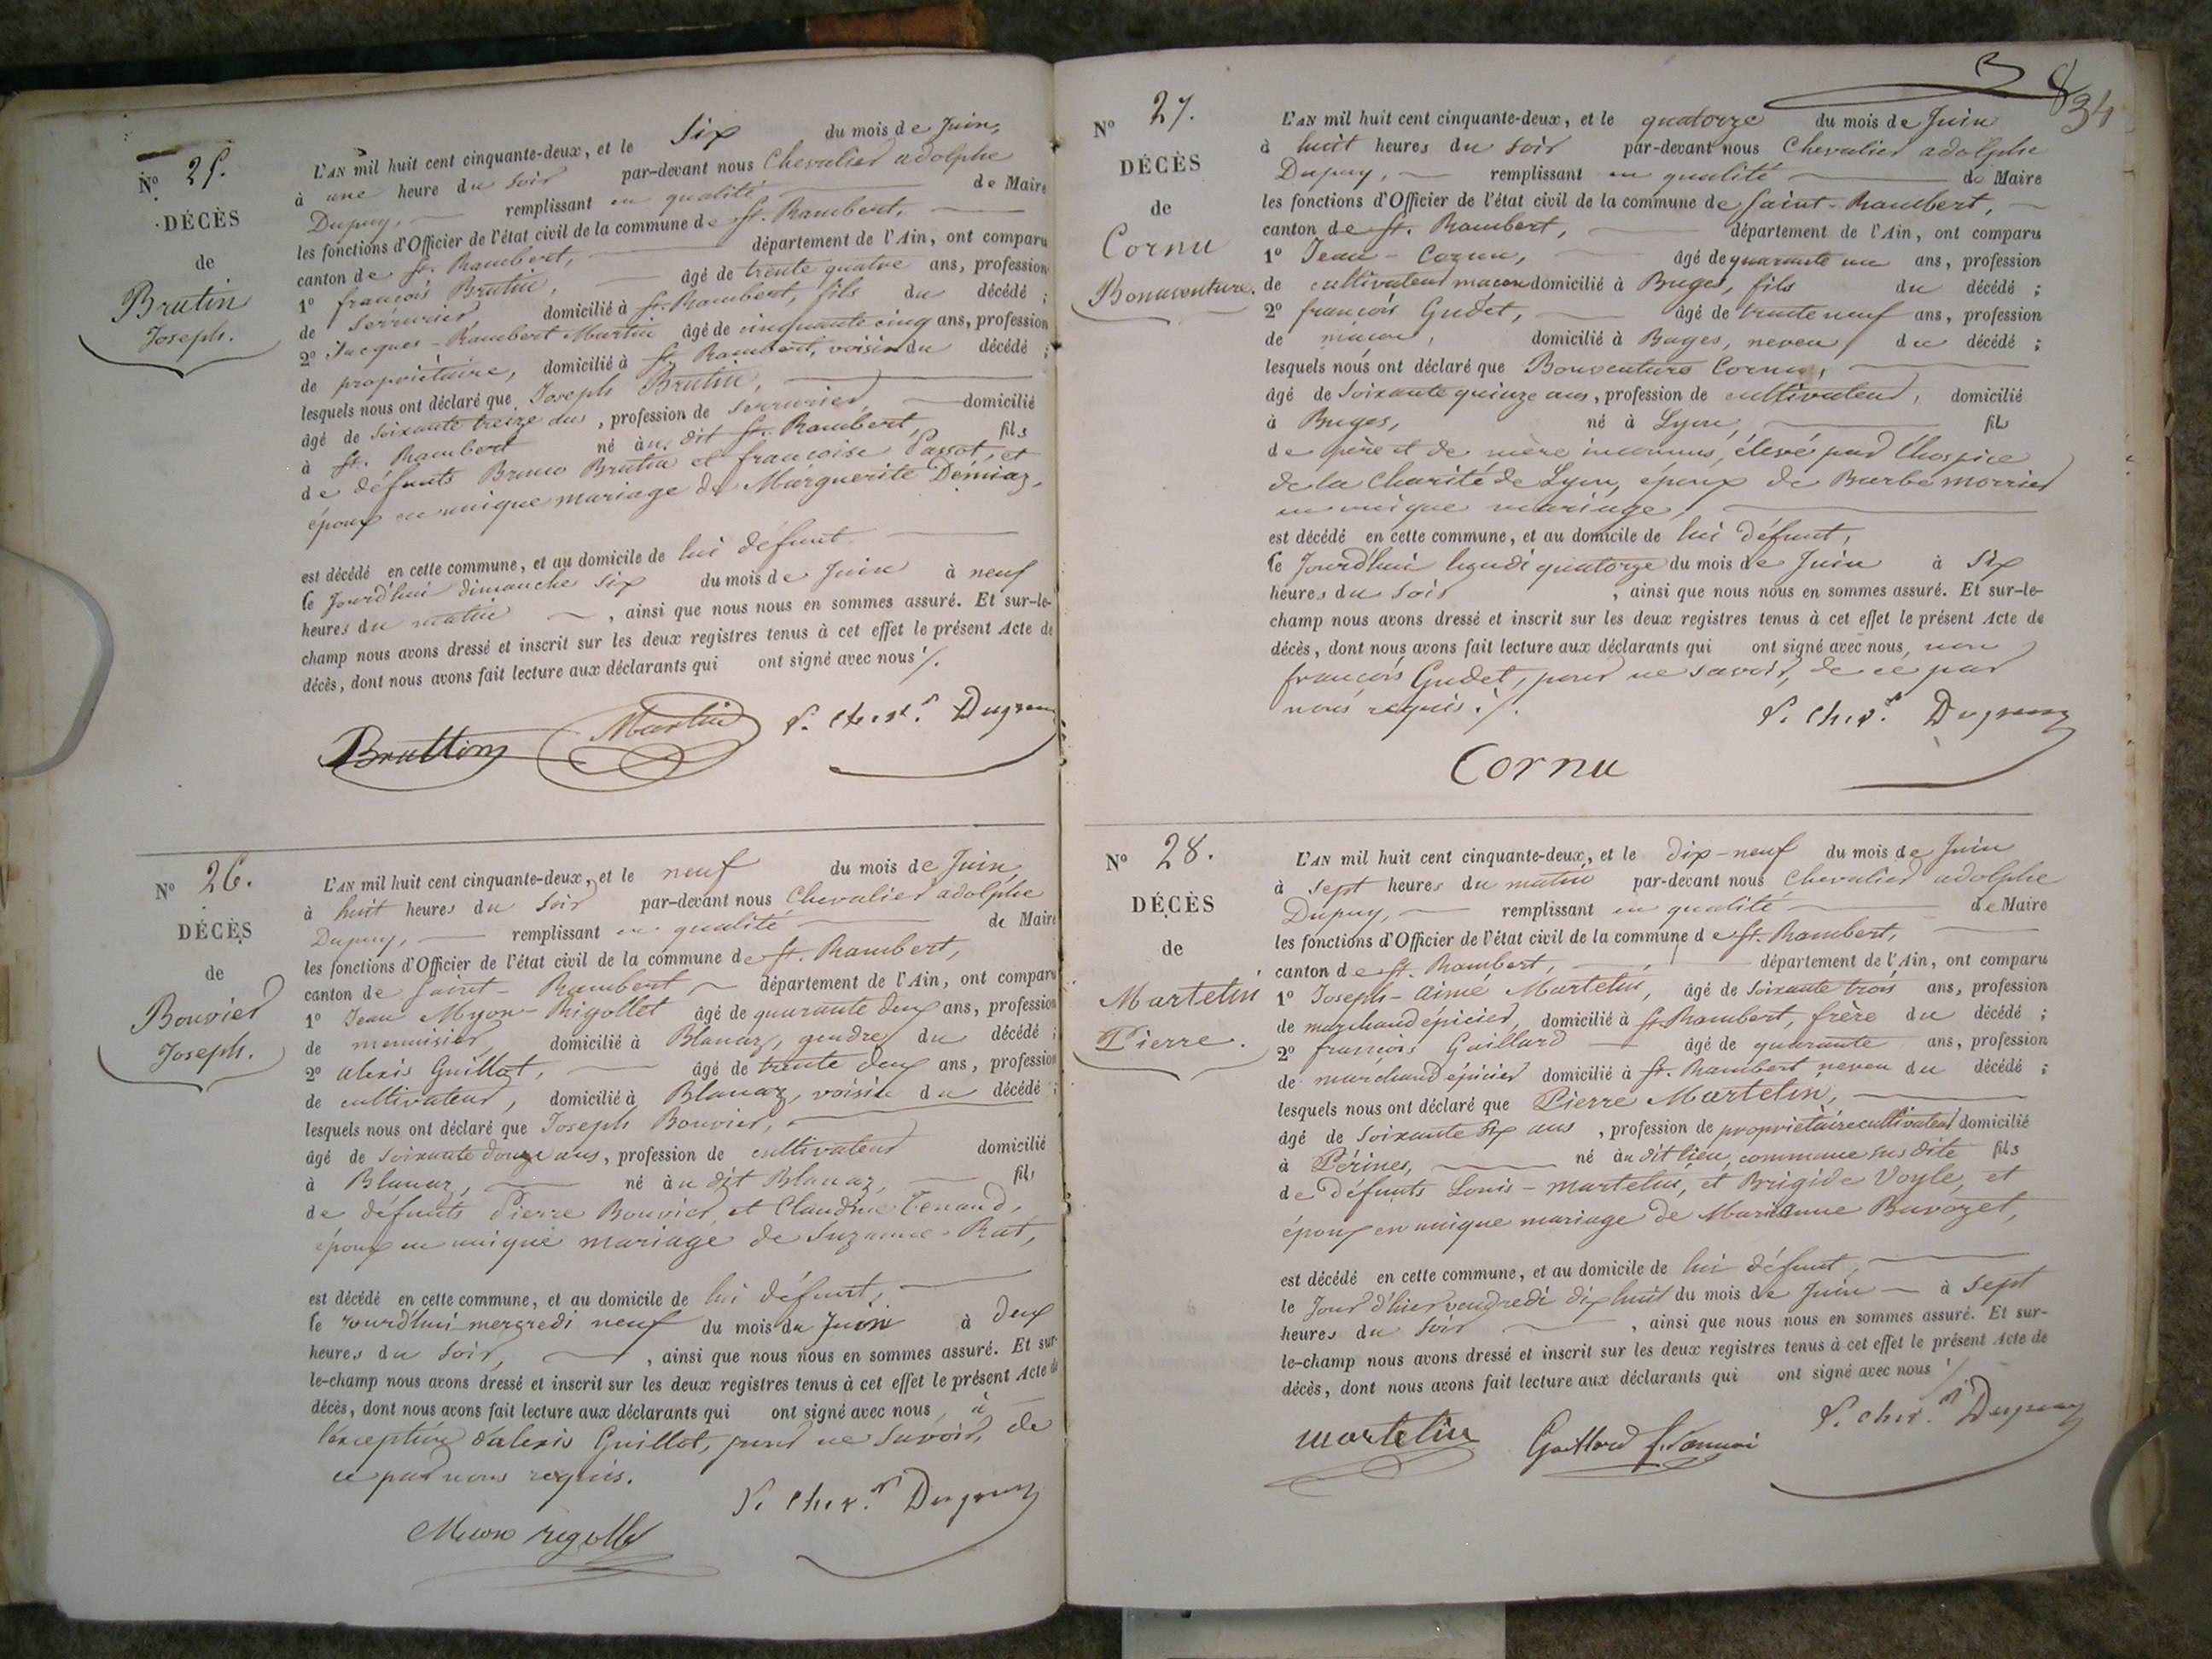 N° 25.
DÉCÈS
de
Brutin
Joseph.
L'AN mil huit cent cinquante-deux, et le six du mois de Juin,
à une heure du soir par-devant nous Chevalier adolphe
Dupuy, remplissant en qualité de Maire
les fonctions d'Officier de l'état civil de la commune de St. Rambert,
canton de St. Rambert, département de l'Ain, ont comparu
1° françois Brutin, âgé de trente quatre ans, profession
de serrurier, domicilié à St. Rambert, fils du décédé ;
2° Jacques-Rambert Martin âgé de cinquante cinq ans, profession
de propriétaire, domicilié à St. Rambert, voisin du décédé ;
lesquels nous ont déclaré que Joseph Brutin,
âgé de soixante treize ans, profession de serrurier, domicilié
à St. Rambert né au dit St. Rambert, fils
de défunts Bruno Brutin et françoise Passot, et
époux en unique mariage de Marguerite Démiaz,
est décédé en cette commune, et au domicile de lui défunt
le Jourd'hui dimanche six du mois de Juin à neuf
heures du matin, ainsi que nous nous en sommes assuré. Et sur-le-
champ nous avons dressé et inscrit sur les deux registres tenus à cet effet le présent Acte de
décès, dont nous avons fait lecture aux déclarants qui ont signé avec nous ./.
Bruttin Martin P. Chev.r Dupuy
N° 26.
DÉCÈS
de
Bouvier
Joseph.
L'AN mil huit cent cinquante-deux, et le neuf du mois de Juin,
à huit heures du soir par-devant nous Chevalier adolphe
Dupuy, remplissant en qualité de Maire
les fonctions d'Officier de l'état civil de la commune de St. Rambert,
canton de Saint-Rambert département de l'Ain, ont comparu
1° Jean Myon-Rigollet âgé de quarante deux ans, profession
de menuisier, domicilié à Blanaz, gendre du décédé ;
2° alexis Guillot, âgé de trente deux ans, profession
de cultivateur, domicilié à Blanaz, voisin du décédé ;
lesquels nous ont déclaré que Joseph Bouvier,
âgé de soixante douze ans, profession de cultivateur domicilié
à Blanaz, né au dit Blanaz, fils
de défunts Pierre Bouvier, et Claudine Tenand,
époux en unique mariage de Suzanne Rat,
est décédé en cette commune, et au domicile de lui défunt,
le Jourd'hui mercredi neuf du mois de Juin à deux
heures du soir, ainsi que nous nous en sommes assuré. Et sur-
le-champ nous avons dressé et inscrit sur les deux registres tenus à cet effet le présent Acte de
décès, dont nous avons fait lecture aux déclarants qui ont signé avec nous, à
l'exception d'alexis Guillot, pour ne savoir, de
ce par nous requis.
P. Chev.r Dupuy
Mion rigollet
834
N° 27.
DÉCÈS
de
Cornu
Bonaventure.
L'AN mil huit cent cinquante-deux, et le quatorze du mois de Juin
à huit heures du soir par-devant nous Chevalier adolphe
Dupuy, remplissant en qualité de Maire
les fonctions d'Officier de l'état civil de la commune de Saint-Rambert,
canton de St. Rambert, département de l'Ain, ont comparu
1° Jean-Cornu, âgé de quarante un ans, profession
de cultivateur maçon domicilié à Buges, fils du décédé ;
2° françois Gudet, âgé de trente neuf ans, profession
de maçon, domicilié à Buges, neveu du décédé ;
lesquels nous ont déclaré que Bonventure Cornu,
âgé de soixante quinze ans, profession de cultivateur, domicilié
à Buges, né à Lyon, fils
de père et de mère inconnus, élevé par l'hospice
de la Charité de Lyon, époux de Barbe morrier
en unique mariage,
est décédé en cette commune, et au domicile de lui défunt,
le Jourd'hui lundi quatorze du mois de Juin à six
heures du soir, ainsi que nous nous en sommes assuré. Et sur-le-
champ nous avons dressé et inscrit sur les deux registres tenus à cet effet le présent Acte de
décès, dont nous avons fait lecture aux déclarants qui ont signé avec nous, non
françois Gudet, pour ne savoir, de ce par
nous requis ./.
P. Chev.r Dupuy
Cornu
N° 28.
DÉCÈS
de
Martelin
Pierre.
L'AN mil huit cent cinquante-deux, et le dix-neuf du mois de Juin
à sept heures du matin par-devant nous Chevalier adolphe
Dupuy, remplissant en qualité de Maire
les fonctions d'Officier de l'état civil de la commune de St. Rambert,
canton de St. Rambert, département de l'Ain, ont comparu
1° Joseph-Aimé Martelin, âgé de soixante trois ans, profession
de marchand épicier, domicilié à St. Rambert, frère du décédé ;
2° françois Gaillard âgé de quarante ans, profession
de marchand épicier domicilié à St. Rambert neveu du décédé ;
lesquels nous ont déclaré que Pierre Martelin,
âgé de soixante dix ans, profession de propriétaire cultivateur domicilié
à Pérines, né au dit lieu, commune susdite fils
de défunts Louis-martelin, et Brigide Voyle, et
époux en unique mariage de Marianne Buvozet,
est décédé en cette commune, et au domicile de lui défunt,
le Jour d'hier vendredi dix huit du mois de Juin à sept
heures du soir, ainsi que nous nous en sommes assuré. Et sur-
le-champ nous avons dressé et inscrit sur les deux registres tenus à cet effet le présent Acte de
décès, dont nous avons fait lecture aux déclarants qui ont signé avec nous ./.
martelin Gaillard P. Chev.r Dupuy